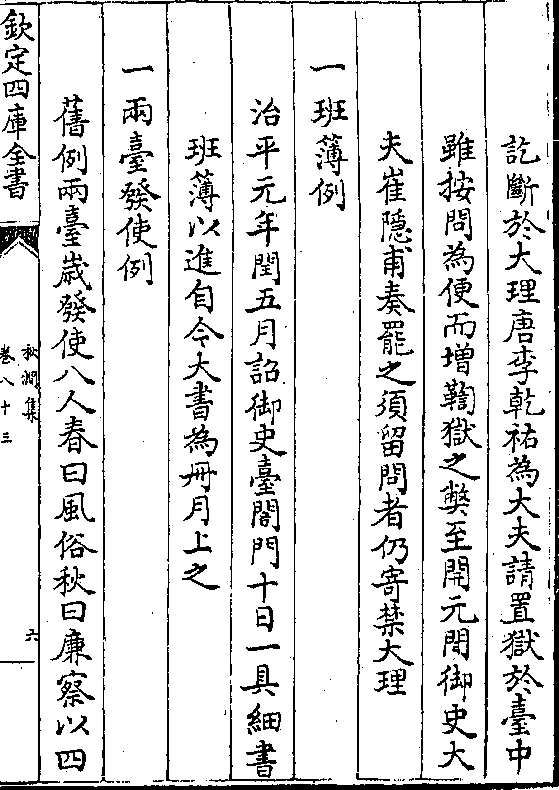 訖斷於大理唐李乾祐為大夫請置獄於臺中
雖按問為便而增鞫獄之弊至開元間御史大
夫崔隠甫奏罷之須留問者仍寄禁大理
一班薄例
治平元年閏五月詔御史臺閤門十日一具細書
班薄以進自今大書為冊月上之
一兩臺發使例
舊例兩臺歳發使八人春曰風俗秋曰廉察以四
欽定四庫全書
秋澗集
卷八十三
六